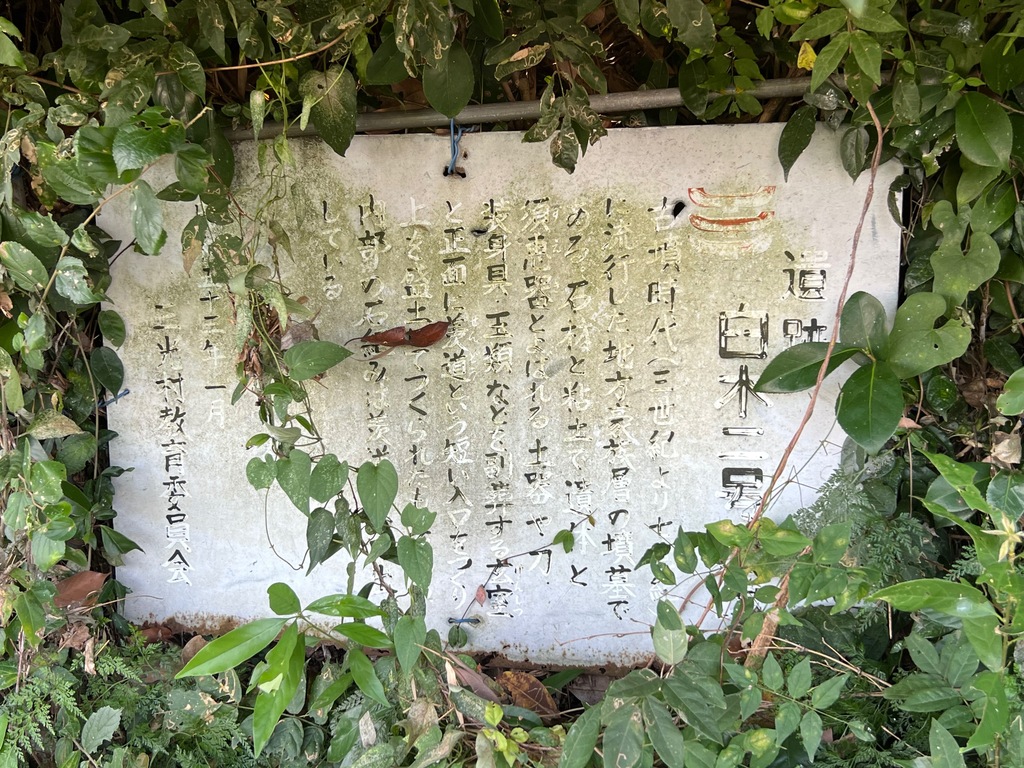 遺跡
白木二号
古墳時代(三世紀より七
に流行した地方豪族層の墳墓で
ある 石材と粘土で遺体と
須恵器とよばれる土器や刀
装身具 玉類などを副葬する玄室
と正面に羨道という短い入口をつくり
上を盛土 てつくられた
内部の石組みは
している
五十三年一月
村教育委員会